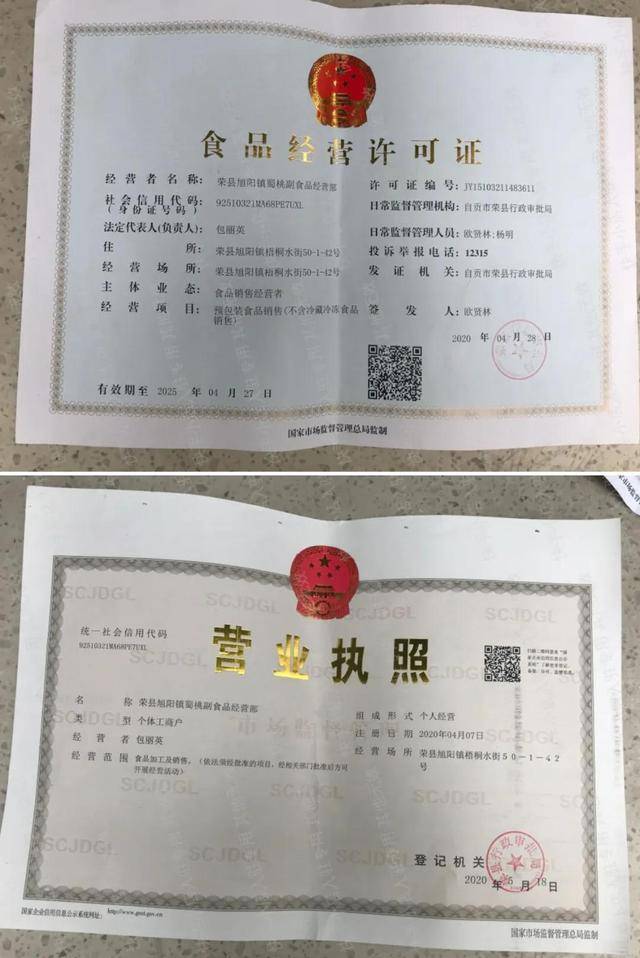 食品经营许可证
经营者名称: 荣县旭阳镇蜀桃副食品经营部
社会信用代码: 92510321MA68PE7UXL
(身份证号码)
法定代表人(负责人): 包丽英
住所: 荣县旭阳镇梧桐水街50-1-42号
经营场所: 荣县旭阳镇梧桐水街50-1-42号
主体业态: 食品销售经营者
经营项目: 预包装食品销售(不含冷藏冷冻食品
销售)
许可证编号: JY15103211483611
日常监督管理机构: 自贡市荣县行政审批局
日常监督管理人员: 欧贤林;杨明
投诉举报电话: 12315
发证机关: 自贡市荣县行政审批局
签发人: 欧贤林
2020 年 04 月 28 日
有效期至 2025 年 04 月 27 日
国家市场监督管理总局监制
SCJDGL
SCJDGL
统一社会信用代码
92510321MA68PE7UXL
营业执照
名称 荣县旭阳镇蜀桃副食品经营部
类型 个体工商户
经营者 包丽英
经营范围 食品加工及销售。(依法须经批准的项目,经相关部门批准后方可
开展经营活动)
组成形式 个人经营
注册日期 2020年04月07日
经营场所 荣县旭阳镇梧桐水街50-1-42
号
市场监督管理
SCJDGL
SCJDGL
SCJDGL
SCJDGL
登记机关
荣县行政审批局
2020 年 5 月 18 日
国家企业信用信息公示系统网址: http://www.gsxt.gov.cn
国家市场监督管理总局监制